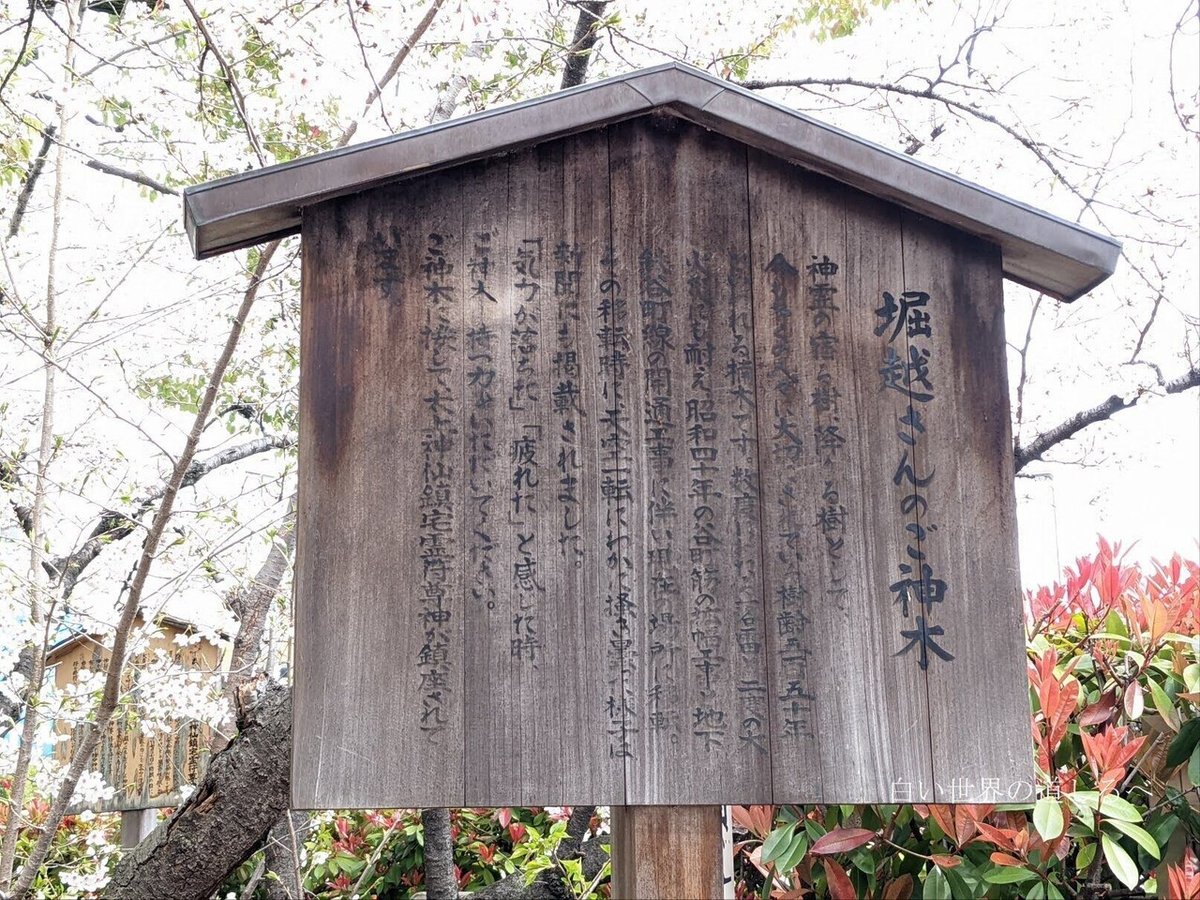 堀越さんのご神木
神霊の宿る樹、降りる樹として、
今から 大切にされてい 樹齢五百五十年
われる楠木です。数度にわた 落雷 二度の大
火 にも耐え、昭和四十年の谷町筋の拡幅工事 地下
鉄谷町線の開通工事に伴い現在 場所 移転。
その移転時に天空一転にわかに掻き曇 様子は
新聞にも掲載されました。
「気力が落ちた」「疲れた」と感じた時、
ご神木 持つ力をいただいてください。
ご神木に接して、太上神仙鎮宅霊符尊神が鎮座されて
います
白い世界の道しるべ